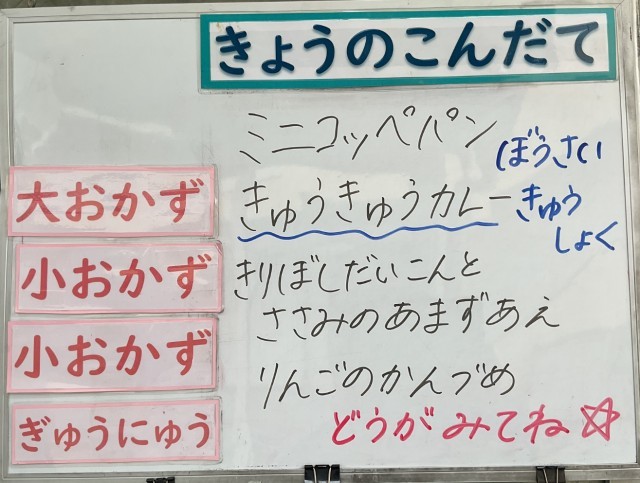 きょうのこんだて
ミニコッペパン
ぼうさい
大おかず
きゅうきゅうカレー
きゅう
しょく
小おかず
きりぼしだいこんと
ささみのあまずあえ
小おかず
りんごのかんづめ
ぎゅうにゅう
どうがみてね☆